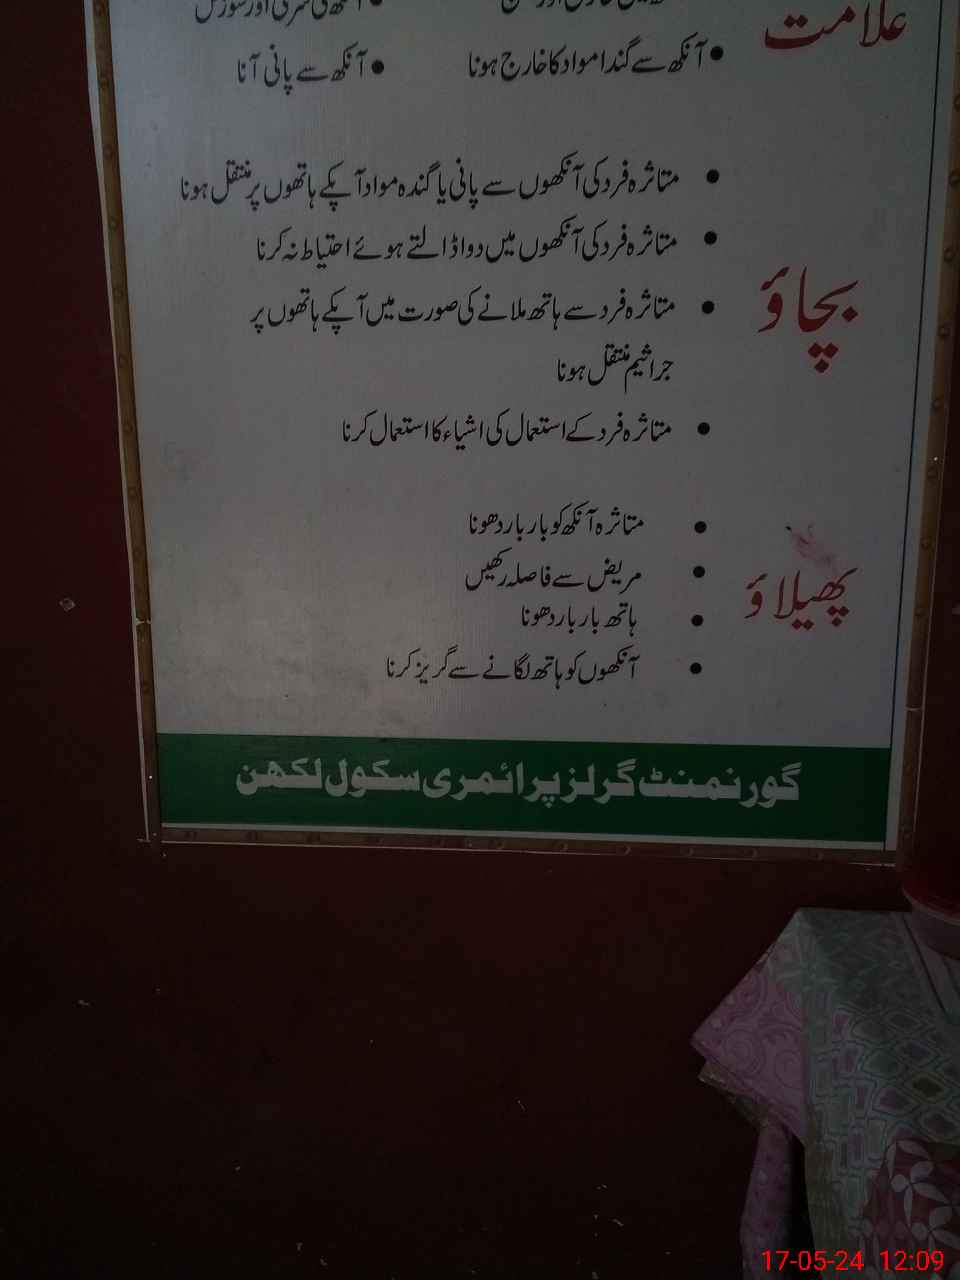 علامت
• آنکھ سے گندا مواد کا خارج ہونا • آنکھ سے پانی آنا
بچاؤ
• متاثرہ فرد کی آنکھوں سے پانی یا گندہ مواد آپکے ہاتھوں پر منتقل ہونا
• متاثرہ فرد کی آنکھوں میں دوا ڈالتے ہوئے احتیاط نہ کرنا
• متاثرہ فرد سے ہاتھ ملانے کی صورت میں آپکے ہاتھوں پر
جراثیم منتقل ہونا
• متاثرہ فرد کے استعمال کی اشیاء کا استعمال کرنا
پھیلاؤ
• متاثرہ آنکھ کو بار بار دھونا
• مریض سے فاصلہ رکھیں
• ہاتھ بار بار دھونا
• آنکھوں کو ہاتھ لگانے سے گریز کرنا
گورنمنٹ گرلز پرائمری سکول لکھن
17-05-24 12:09